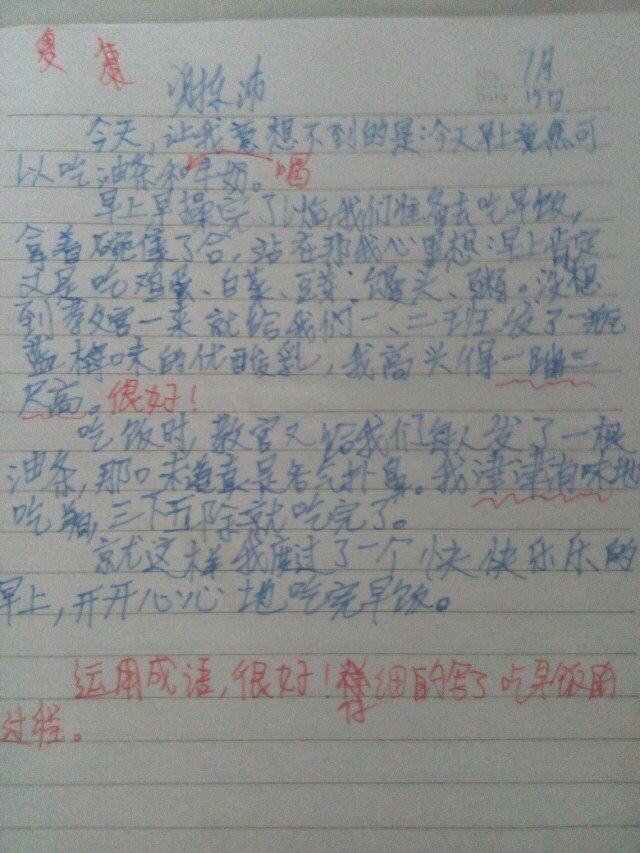 复 复
No.
7月
Date
15日
今天,让我意想不到的是:今天早上竟然可
以吃油条和牛奶。喝
早上早操完了以后,我们准备去吃早饭,
拿着碗集了合,站在那我心里想:早上肯定
又是吃鸡蛋、白菜、豆芽、馒头、粥。没想
到教官一来就给我们一、二班发了一瓶
蓝莓味的优酸乳,我高兴得一蹦三
尺高。很好!
吃饭时,教官又给我们每人发了一根
油条,那味道真是香气扑鼻。我津津有味地
吃着,三下五除就吃完了。
就这样我度过了一个快快乐乐的
早上,开开心心地吃完早饭。
运用成语,很好!详细的写了吃早饭的
过程。